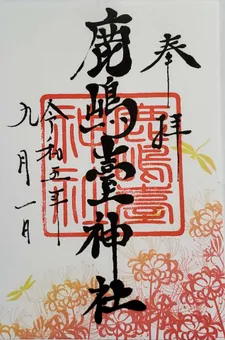 奉拝
鹿嶋臺神社
令和五年
九月一日
鹿嶋臺
神社